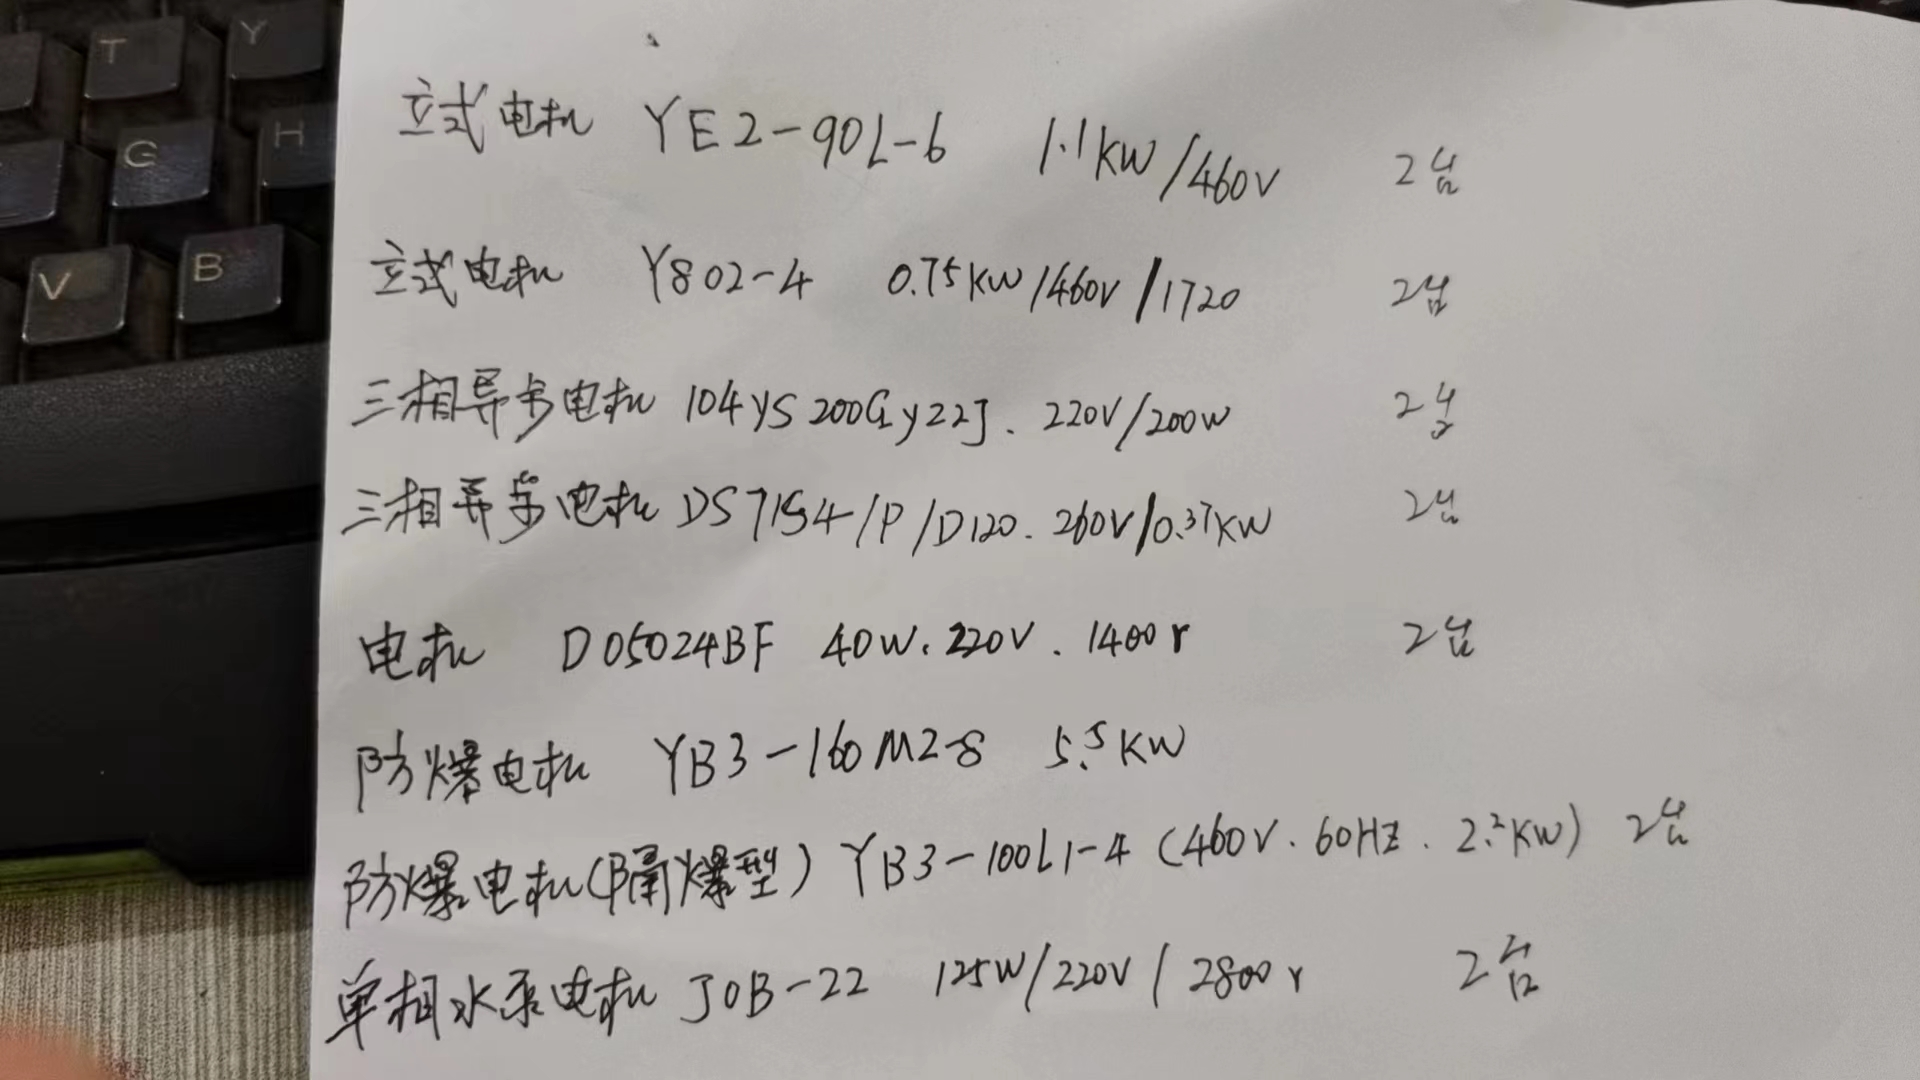 T Y
G H
V B
立式电机 YE2-90L-6 1.1KW/460V 2台
立式电机 Y802-4 0.75KW/460V/1720 2台
三相异步电机 104YS200GY22J. 220V/200W 2台
三相异步电机 DS7154/P/D120. 260V/0.37KW 2台
电机 D05024BF 40W. 220V. 1400r 2台
防爆电机 YB3-160M2-8 5.5KW
防爆电机(隔爆型) YB3-100L1-4 (460V. 60HZ. 2.2KW) 2台
单相水泵电机 JOB-22 125W/220V/2800r 2台